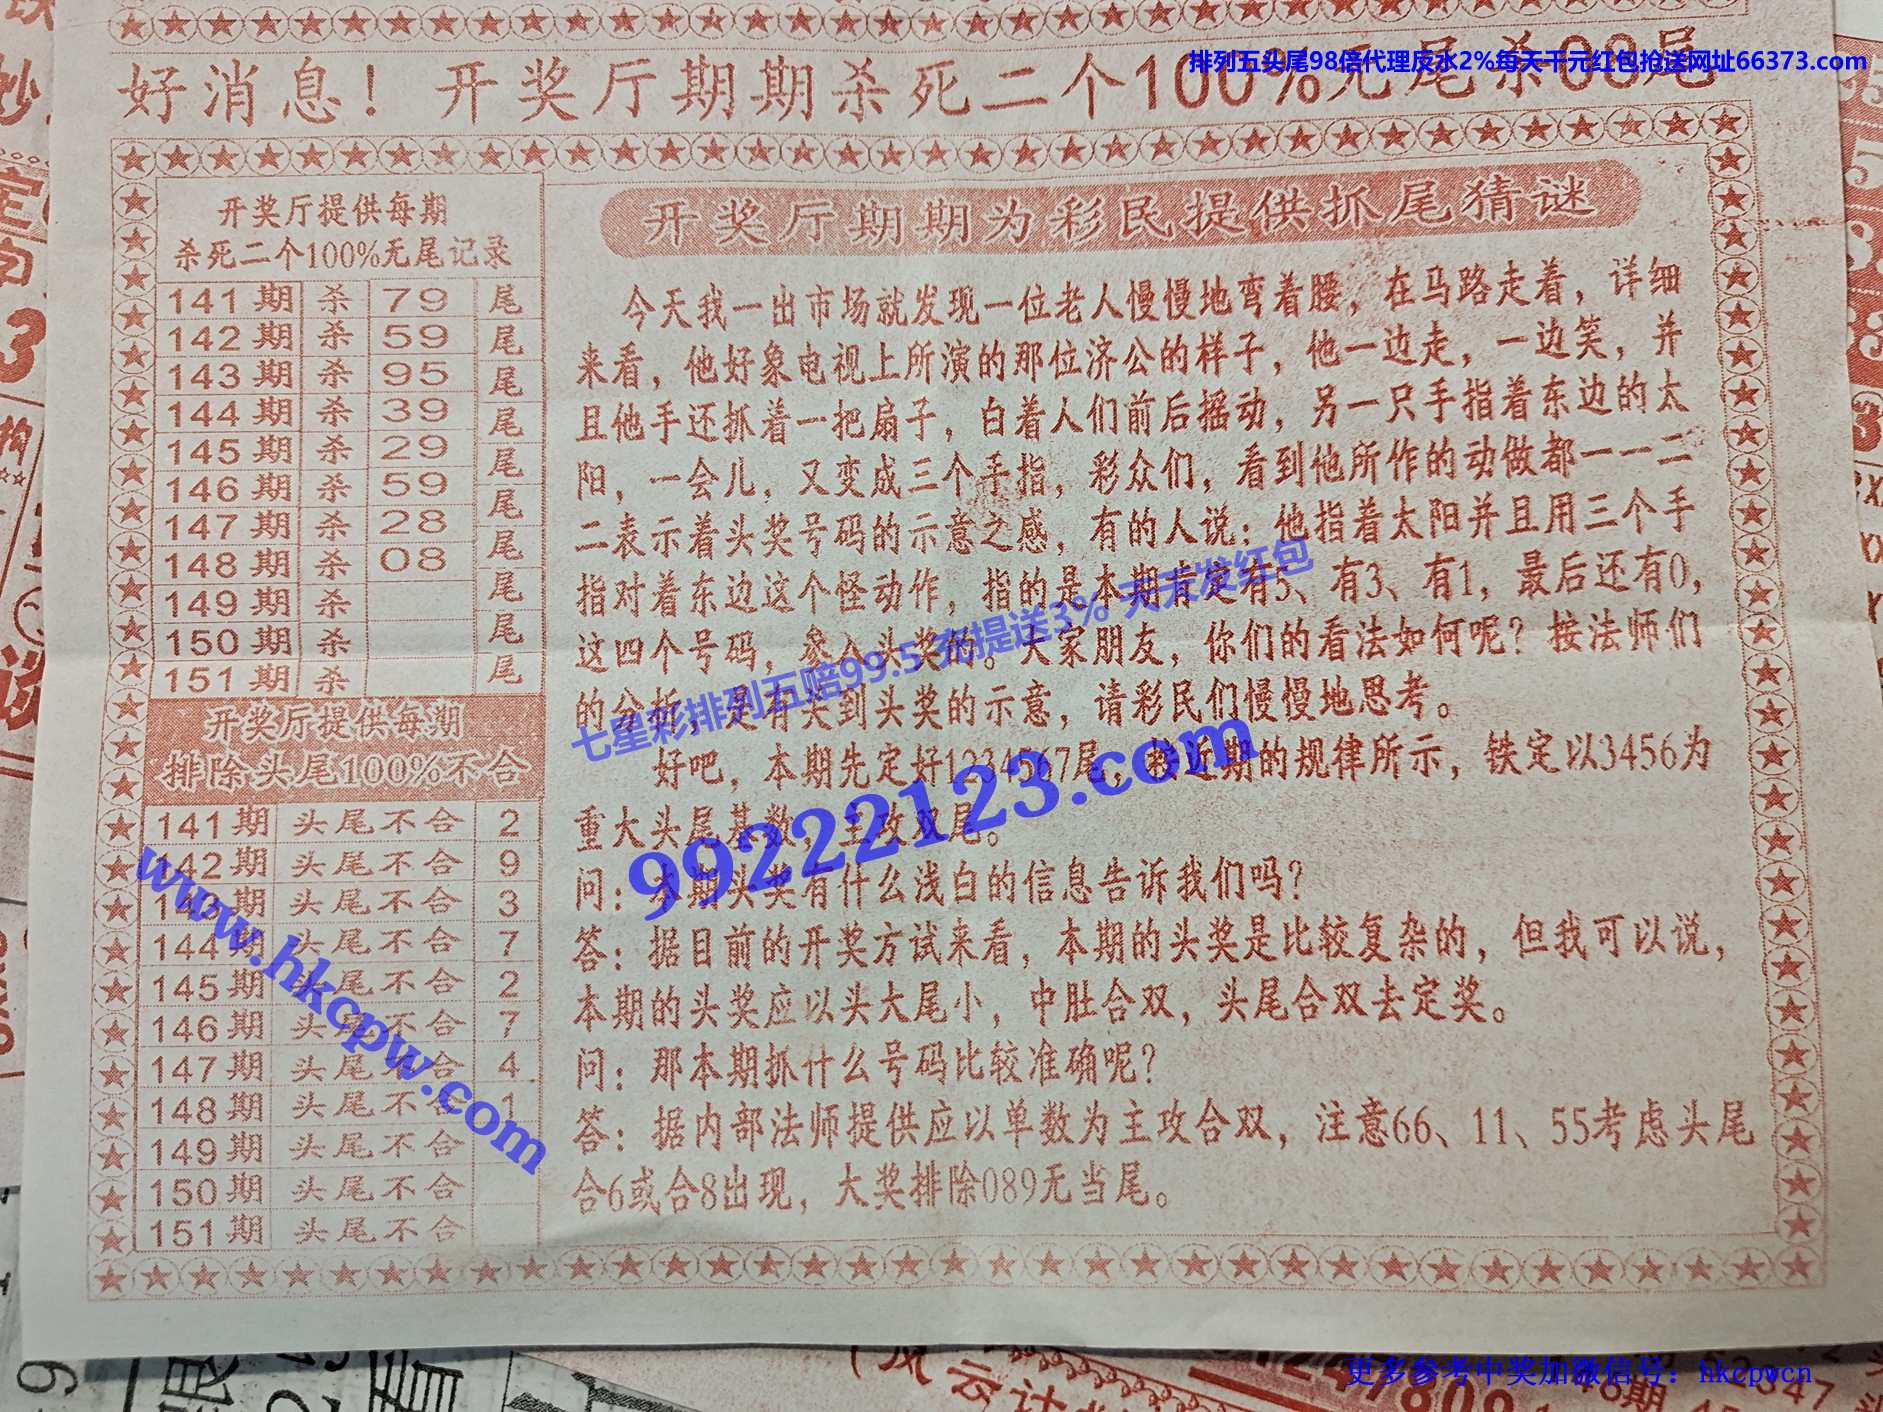 排列五头尾98倍代理反水2%每天千元红包抢送网址66373.com
好消息！开奖厅期期杀死二个100%无尾杀08尾
开奖厅提供每期
杀死二个100%无尾记录
141期 杀 79 尾
142期 杀 59 尾
143期 杀 95 尾
144期 杀 39 尾
145期 杀 29 尾
146期 杀 59 尾
147期 杀 28 尾
148期 杀 08 尾
149期 杀 尾
150期 杀 尾
151期 杀 尾
开奖厅提供每期
排除头尾100%不合
141期 头尾不合 2
142期 头尾不合 9
143期 头尾不合 3
144期 头尾不合 7
145期 头尾不合 2
146期 头尾不合 7
147期 头尾不合 4
148期 头尾不合 1
149期 头尾不合
150期 头尾不合
151期 头尾不合
开奖厅期期为彩民提供抓尾猜谜
今天我一出市场就发现一位老人慢慢地弯着腰，在马路走着，详细
来看，他好象电视上所演的那位济公的样子，他一边走，一边笑，并
且他手还抓着一把扇子，白着人们前后摇动，另一只手指着东边的太
阳，一会儿，又变成三个手指，彩众们，看到他所作的动做都一一二
二表示着头奖号码的示意之感，有的人说：他指着太阳并且用三个手
指对着东边这个怪动作，指的是本期肯定有5、有3、有1，最后还有0，
这四个号码，参入头奖的。大家朋友，你们的看法如何呢？按法师们
的分析，是有关到头奖的示意，请彩民们慢慢地思考。
好吧，本期先定好1234567尾，按近期的规律所示，铁定以3456为
重大头尾基数，主攻双尾。
问：本期头奖有什么浅白的信息告诉我们吗？
答：据目前的开奖方试来看，本期的头奖是比较复杂的，但我可以说，
本期的头奖应以头大尾小，中肚合双，头尾合双去定奖。
问：那本期抓什么号码比较准确呢？
答：据内部法师提供应以单数为主攻合双，注意66、11、55考虑头尾
合6或合8出现，大奖排除089无当尾。
七星彩排列五赔99.5 充提送3% 天天发红包
99222123.com
www.hkcpw.com
更多参考中奖加微信号：hkcpwcn